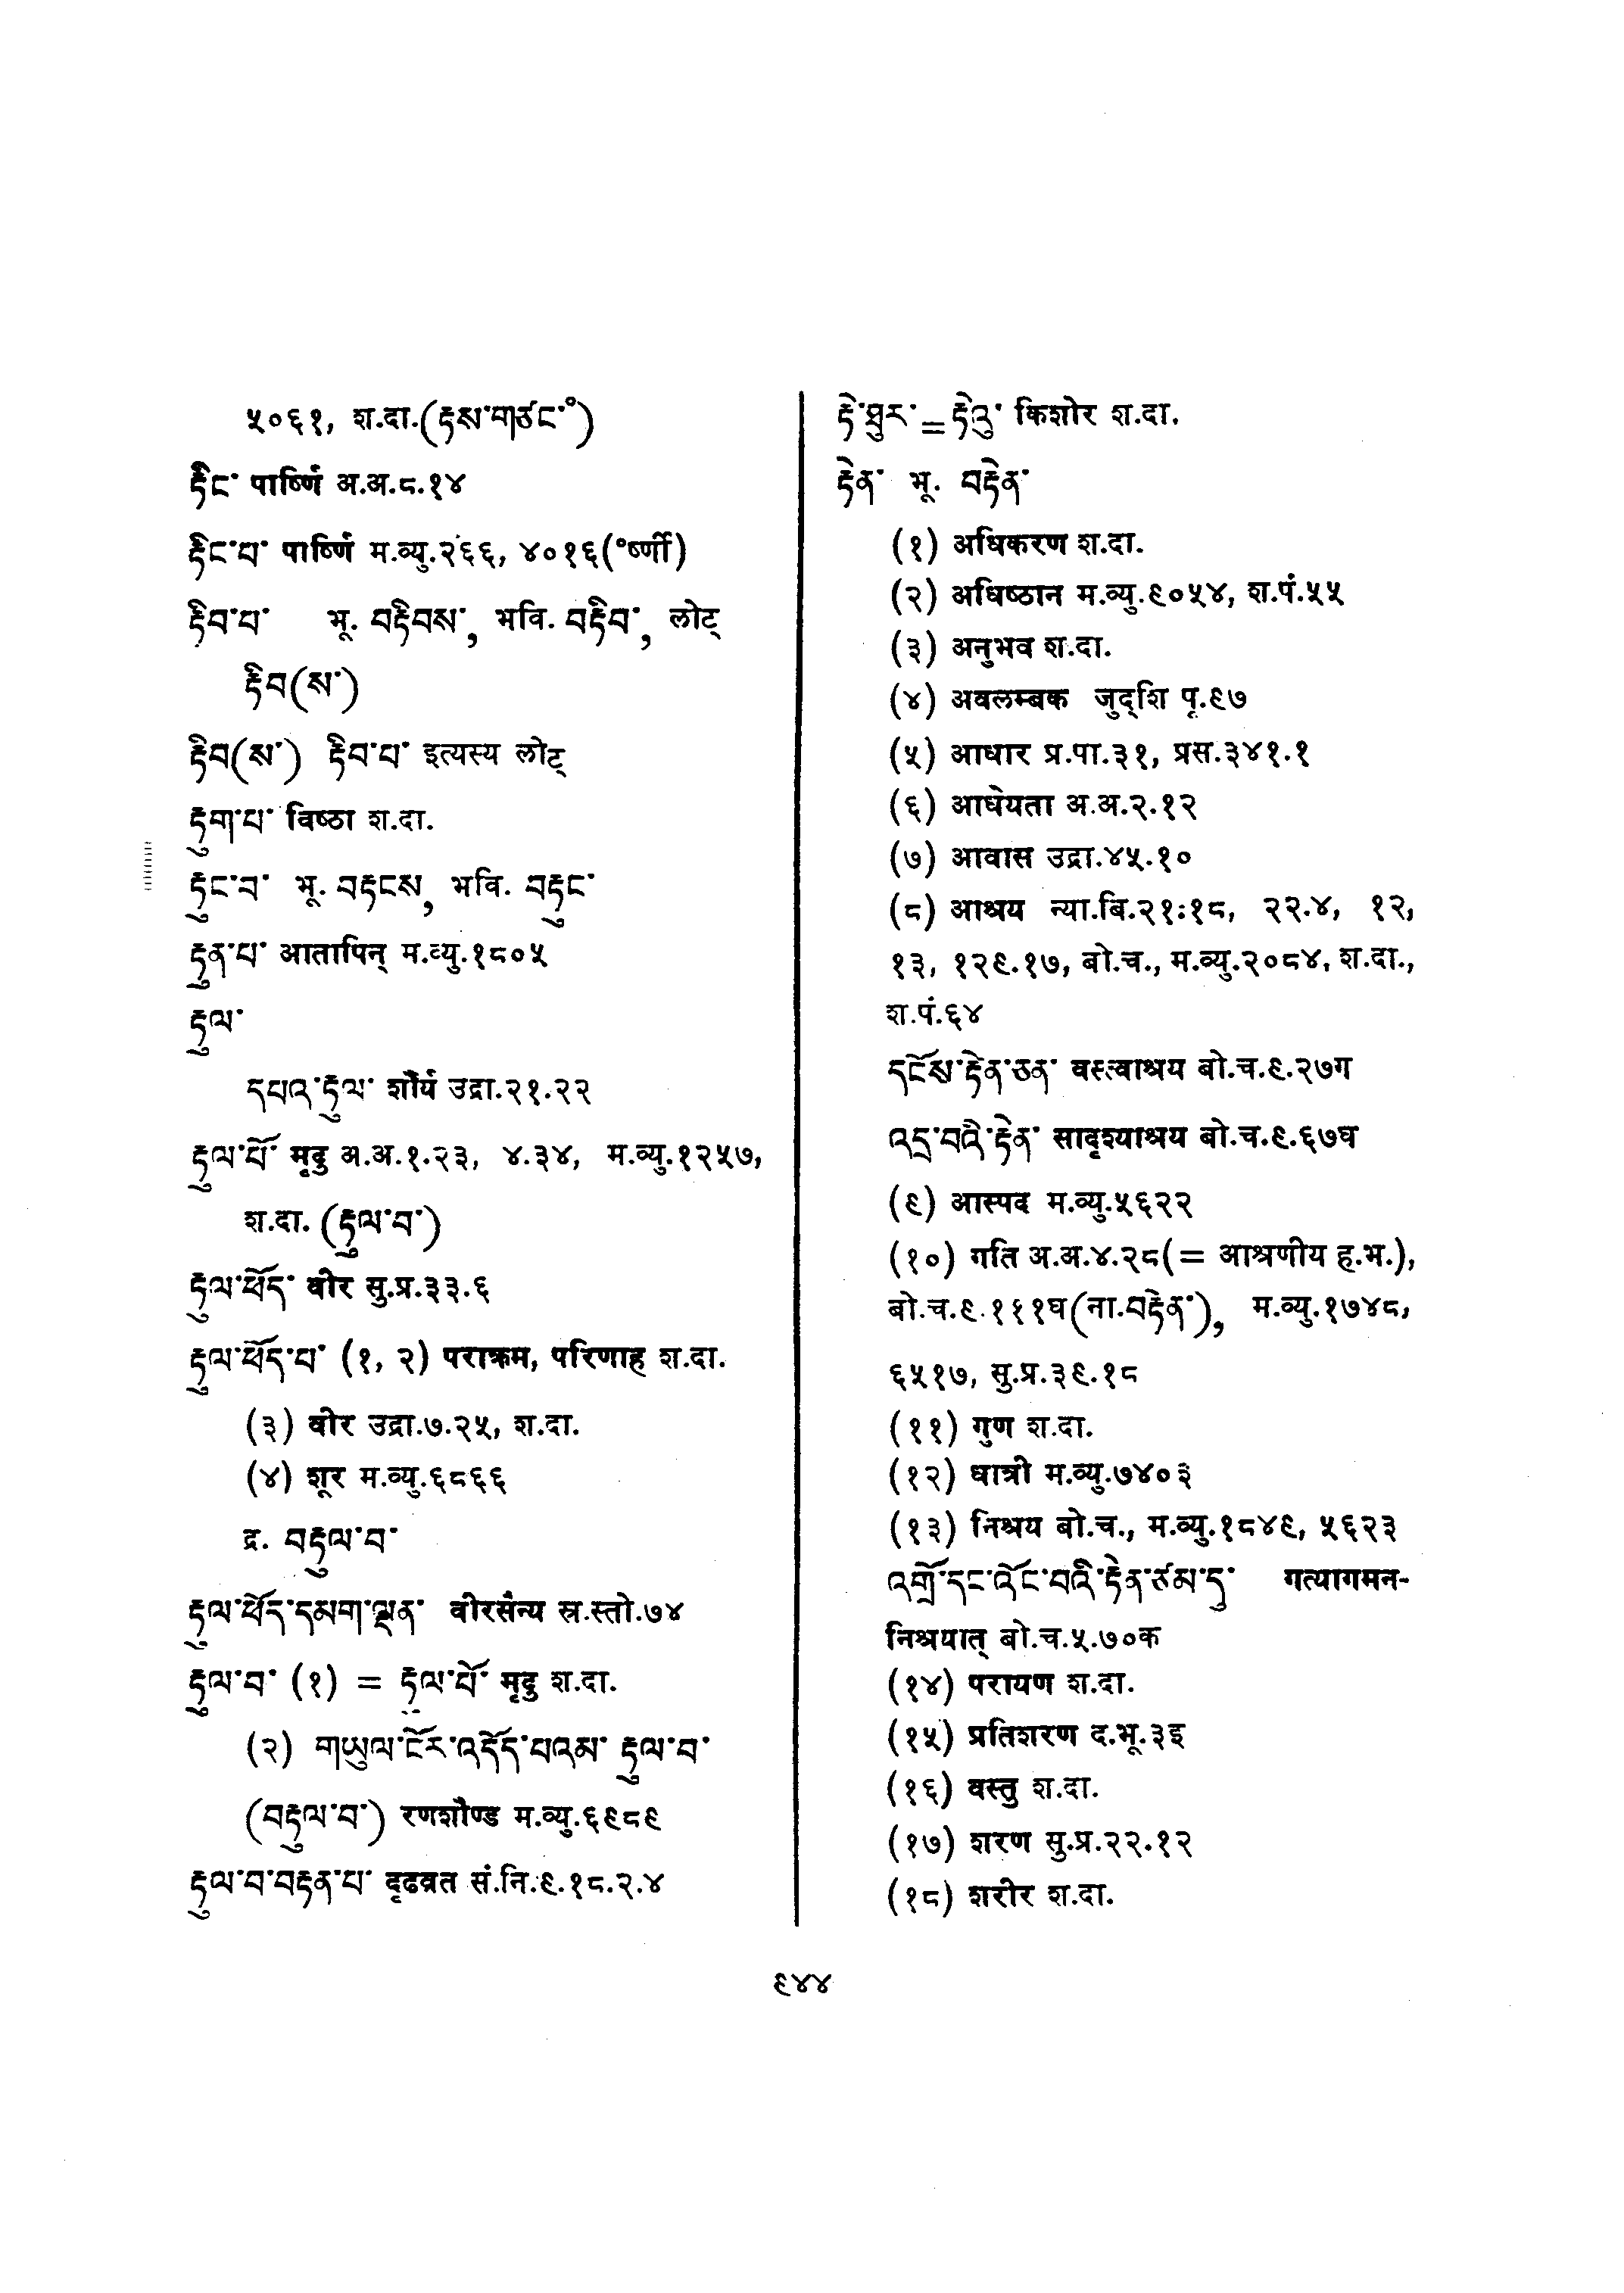 ५०६१, श.दा.(རྡས་གཙང་°)
རྟིང་ पार्ष्णि अ.अ.८.१४
རྟིང་པ་ पार्ष्णि म.व्यु.२६६, ४०१६(°र्ष्णी)
རྟིབ་པ་ भू. བརྟིབས་, भवि. བརྟིབ་, लोट्
རྟིབ(ས་)
རྟིབ(ས་) རྟིབ་པ་ इत्यस्य लोट्
རྟུག་པ་ विष्ठा श.दा.
རྟུང་བ་ भू. བརྟངས, भवि. བརྟུང་
རྟུན་པ་ आतापिन् म.व्यु.१८०५
རྟུལ་
དཔའ་རྟུལ་ शौर्य उद्रा.२१.२२
རྟུལ་པོ་ मृदु अ.अ.१.२३, ४.३४, म.व्यु.१२५७,
श.दा. (རྟུལ་བ་)
རྟུལ་ཕོད་ वीर सु.प्र.३३.६
རྟུལ་ཕོད་པ་ (१, २) पराक्रम, परिणाह श.दा.
(३) वीर उद्रा.७.२५, श.दा.
(४) शूर म.व्यु.६८६६
द्र. བརྟུལ་བ་
རྟུལ་ཕོད་དམག་ལྡན་ वीरसैन्य स्र.स्तो.७४
རྟུལ་བ་ (१) = རྟུལ་པོ་ मृदु श.दा.
(२) གཡུལ་ངོར་འདོད་པའམ་ རྟུལ་བ་
(བརྟུལ་བ་) रणशौण्ड म.व्यु.६९८९
རྟུལ་བ་བརྟན་པ་ दृढव्रत सं.नि.९.१८.२.४
རྟེ་ཐུར་=རྟེའུ་ किशोर श.दा.
རྟེན་ भू. བརྟེན་
(१) अधिकरण श.दा.
(२) अधिष्ठान म.व्यु.९०५४, श.पं.५५
(३) अनुभव श.दा.
(४) अवलम्बक जुद्शि पृ.९७
(५) आधार प्र.पा.३१, प्रस.३४१.१
(६) आधेयता अ.अ.२.१२
(७) आवास उद्रा.४५.१०
(८) आश्रय न्या.बि.२१:१८, २२.४, १२,
१३, १२९.१७, बो.च., म.व्यु.२०८४, श.दा.,
श.पं.६४
དངོས་རྟེན་ཅན་ वस्त्वाश्रय बो.च.९.२७ग
འདྲ་བའི་རྟེན་ सादृश्याश्रय बो.च.९.६७घ
(९) आस्पद म.व्यु.५६२२
(१०) गति अ.अ.४.२८(= आश्रणीय ह.भ.),
बो.च.९.१११घ(ना.བརྟེན་), म.व्यु.१७४८,
६५१७, सु.प्र.३९.१८
(११) गुण श.दा.
(१२) धात्री म.व्यु.७४०३
(१३) निश्रय बो.च., म.व्यु.१८४९, ५६२३
འགྲོ་དང་འོང་བའི་རྟེན་ཙམ་དུ་ गत्यागमन-
निश्रयात् बो.च.५.७०क
(१४) परायण श.दा.
(१५) प्रतिशरण द.भू.३इ
(१६) वस्तु श.दा.
(१७) शरण सु.प्र.२२.१२
(१८) शरीर श.दा.
९४४